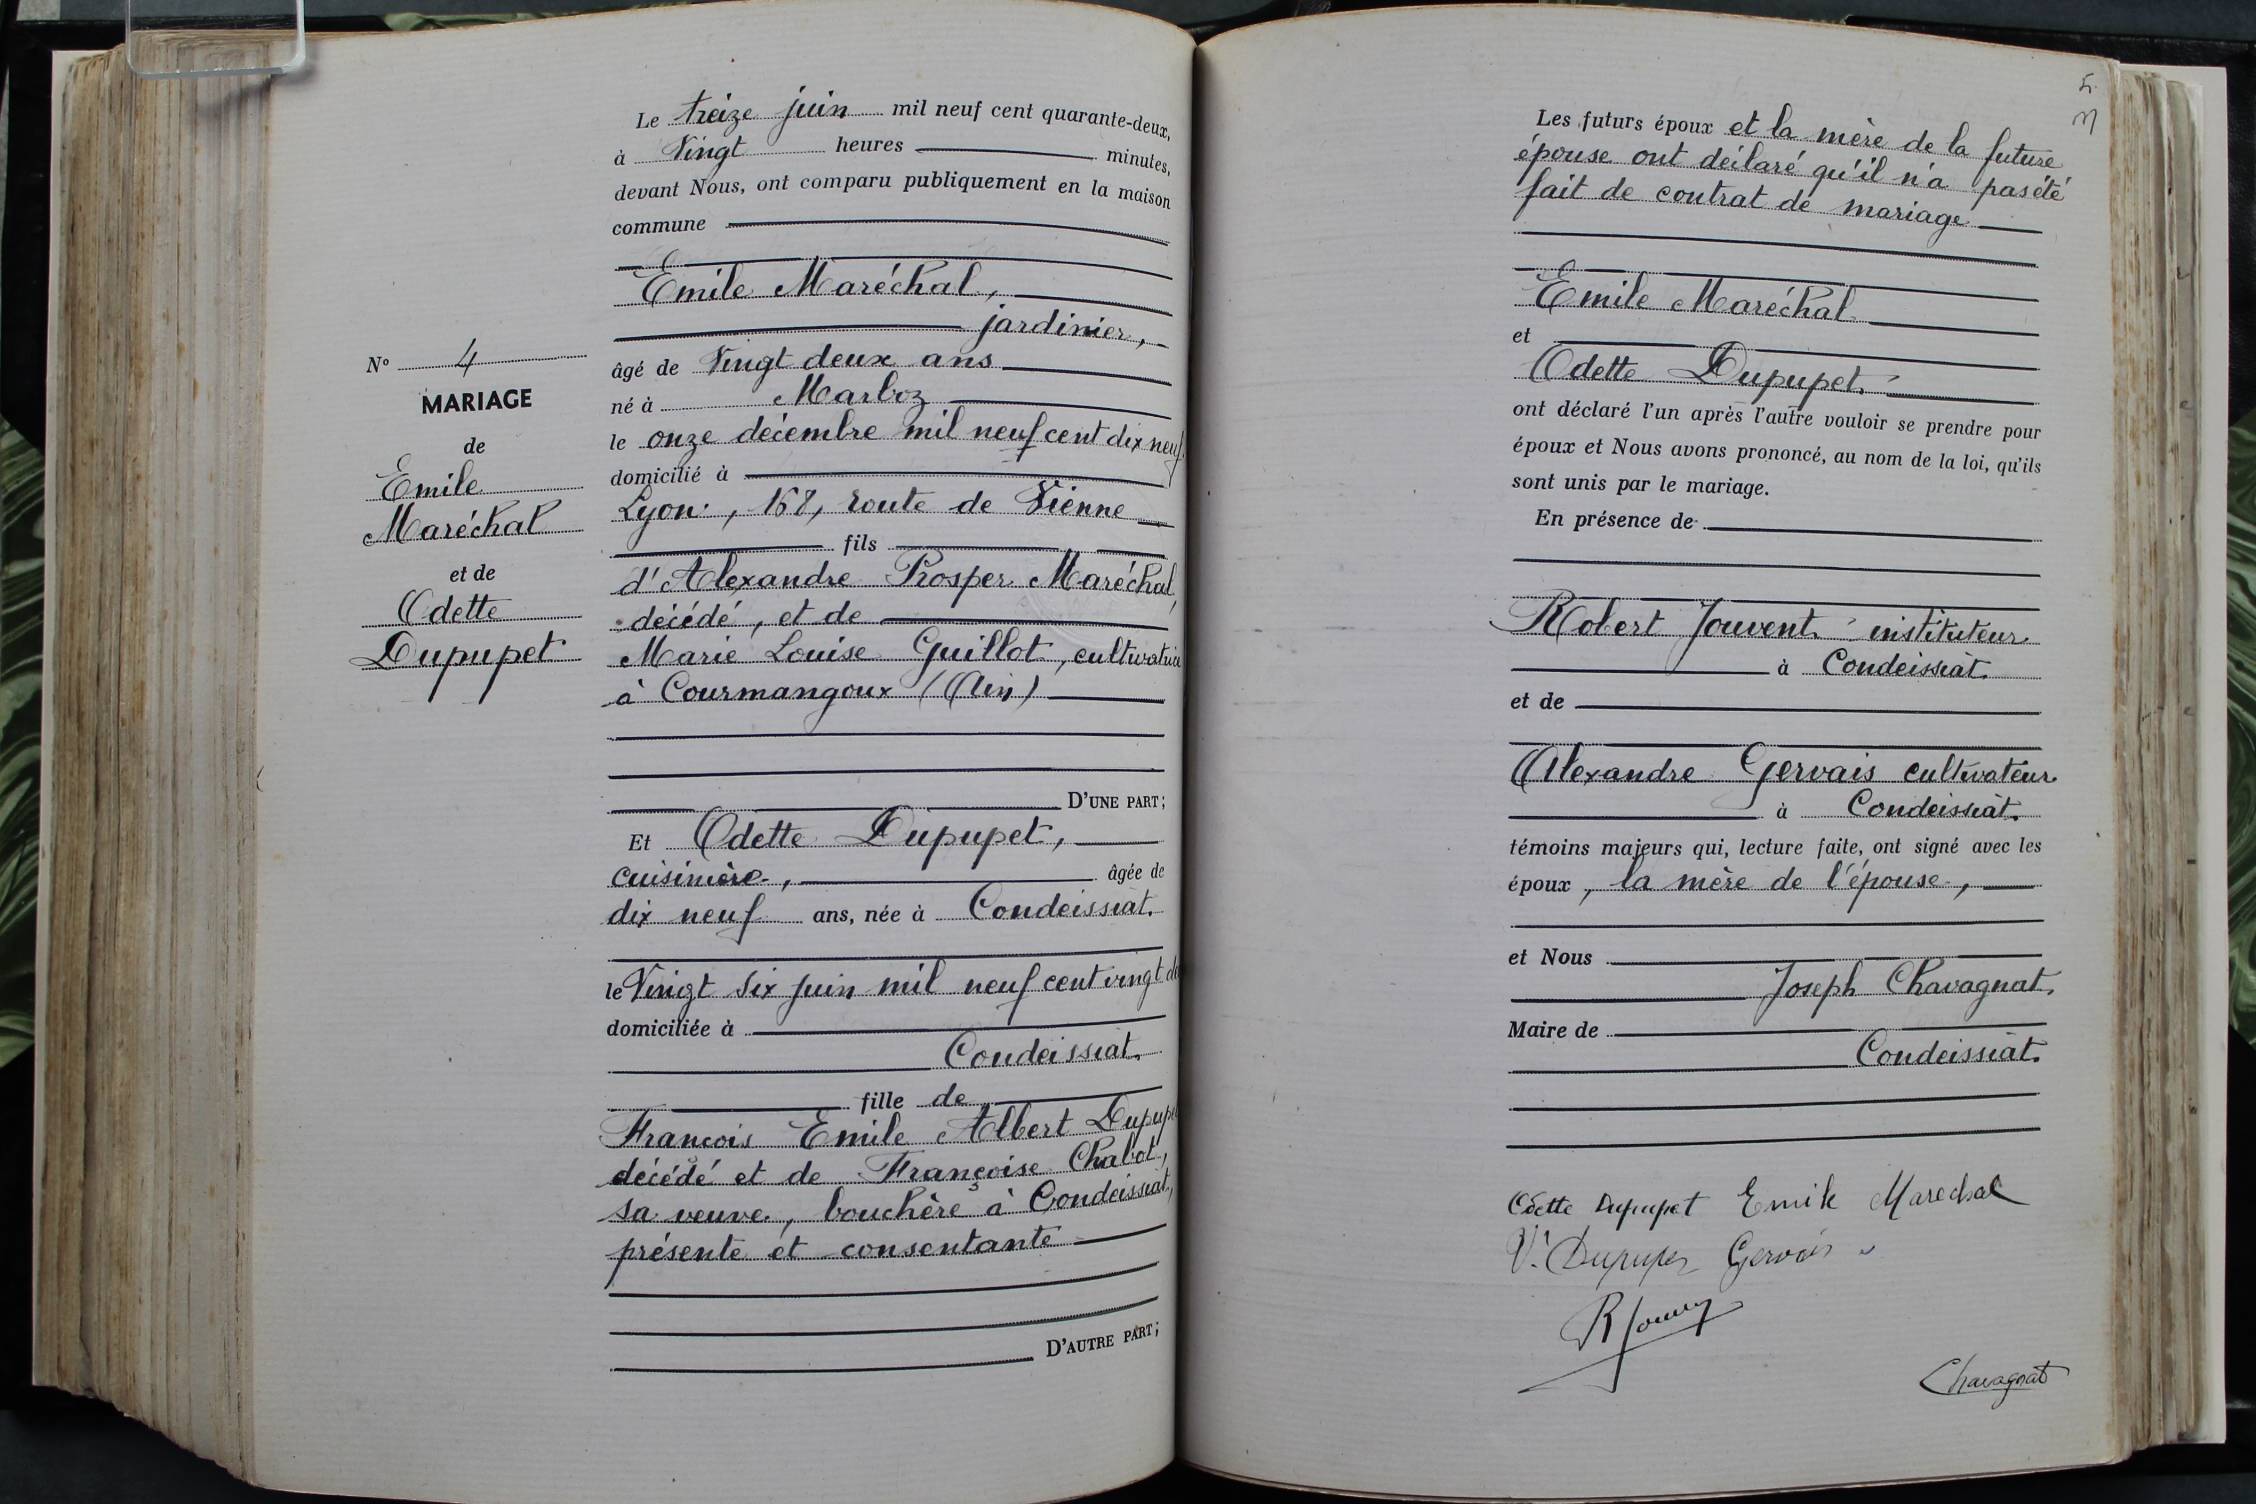 Le treize juin mil neuf cent quarante-deux,
à Vingt heures minutes,
devant Nous, ont comparu publiquement en la maison
commune
Emile Maréchal,
jardinier,
âgé de Vingt deux ans
né à Marboz
le onze décembre mil neuf cent dix neuf
domicilié à
Lyon, 168, route de Vienne
fils
d'Alexandre Prosper Maréchal,
décédé, et de
Marie Louise Guillot, cultivatrice
à Courmangoux (Ain)
D'UNE PART;
Nº 4
MARIAGE
de
Emile
Maréchal
et de
Odette
Dupupet
Et Odette Dupupet,
cuisinière, âgée de
dix neuf ans, née à Condeissiat.
le Vingt six juin mil neuf cent vingt
domiciliée à
Condeissiat.
fille de
François Emile Albert Dupupet
décédé et de Françoise Chabot,
sa veuve, bouchère à Condeissiat,
présente et consentante
D'AUTRE PART;
5.
Les futurs époux et la mère de la future
épouse ont déclaré qu'il n'a pas été
fait de contrat de mariage
Emile Maréchal
et
Odette Dupupet.
ont déclaré l'un après l'autre vouloir se prendre pour
époux et Nous avons prononcé, au nom de la loi, qu'ils
sont unis par le mariage.
En présence de
Robert Jouvent instituteur
à Condeissiat.
et de
Alexandre Gervais cultivateur
à Condeissiat.
témoins majeurs qui, lecture faite, ont signé avec les
époux, la mère de l'épouse,
et Nous
Joseph Chavagnat.
Maire de
Condeissiat.
Odette Dupupet Emile Marechal
Vᵉ Dupupet Gervais
R Jouvent
Chavagnat